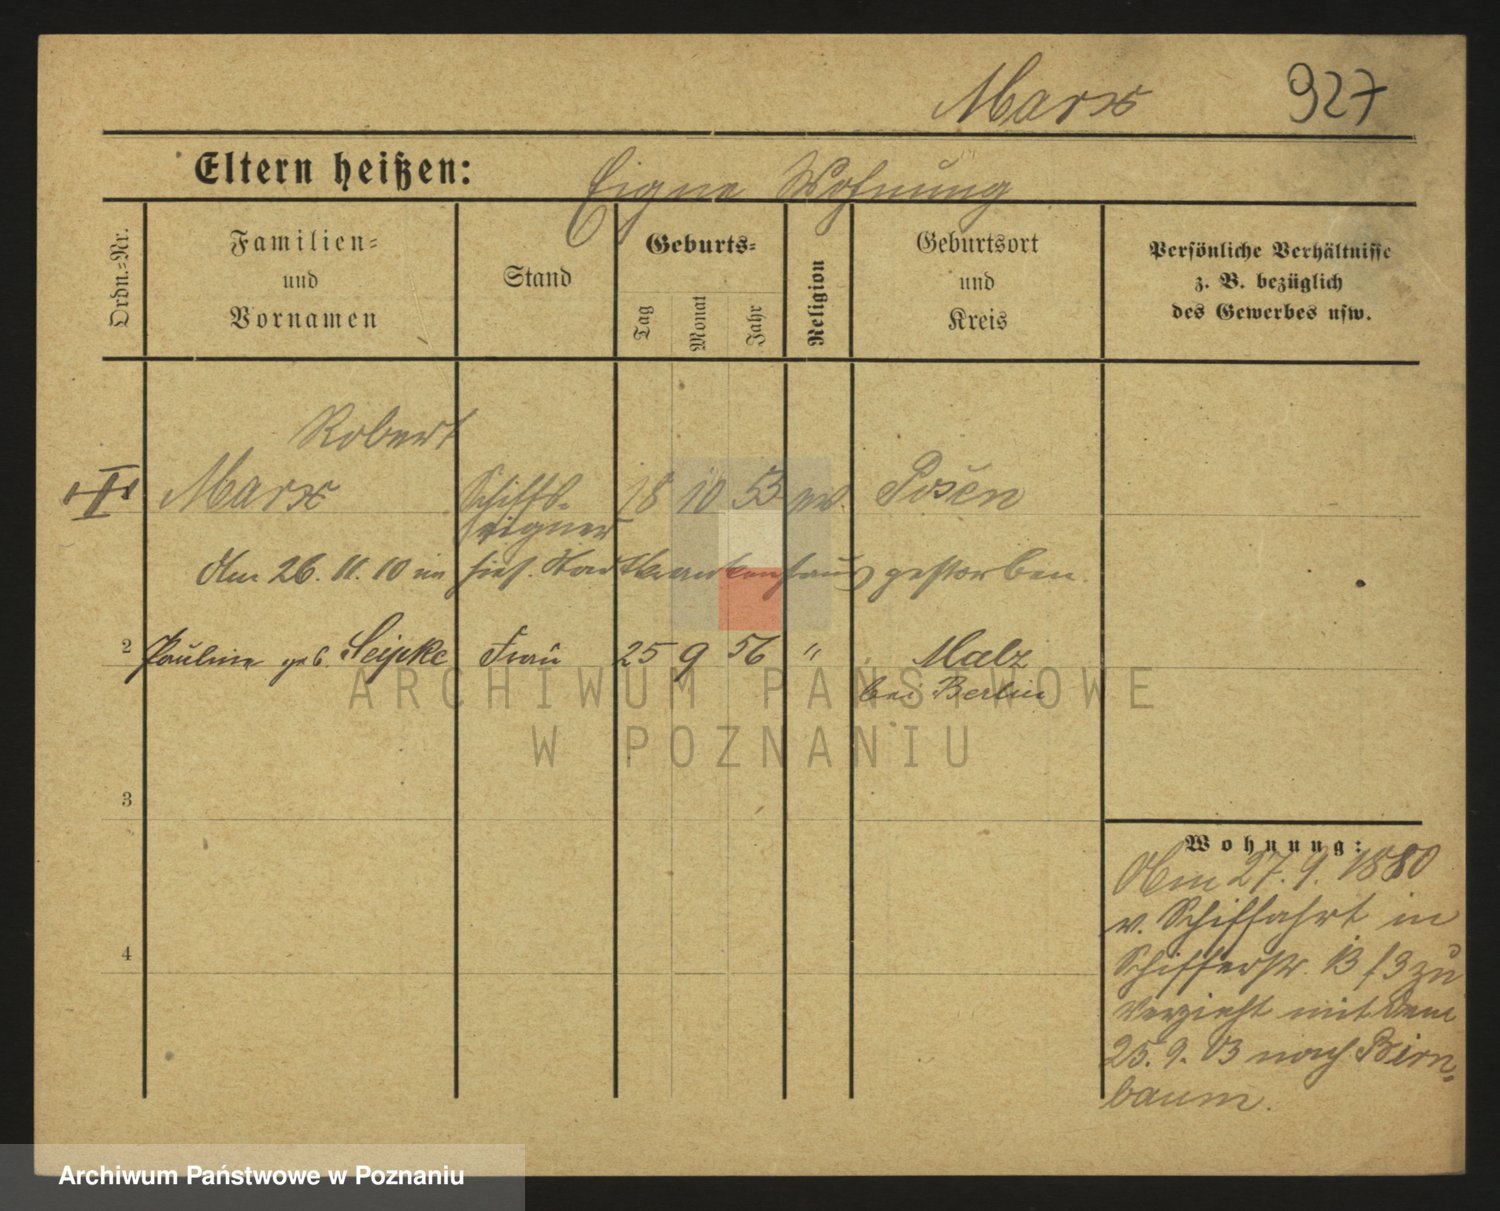 Marx 927
Eltern heißen: Eigne Wohnung
Ordn.-Nr.
Familien-
und
Vornamen
Stand
Geburts-
Tag
Monat
Jahr
Religion
Geburtsort
und
Kreis
Persönliche Verhältnisse
z. B. bezüglich
des Gewerbes usw.
Robert
Marx Schiffs- 18 10 53 Posen
eigner
Am 26. 11. 10 im hies. Stadtkrankenhaus gestorben.
2 Pauline geb. Seipke Frau 25 9 56 " Malz
bei Berlin
3
4
Wohnung:
Am 27. 9. 1880
v. Schiffahrt in
Schifferstr. 13 zu
Verzieht mit dem
25. 9. 03 nach Birn-
baum.
ARCHIWUM PAŃSTWOWE
W POZNANIU
Archiwum Państwowe w Poznaniu